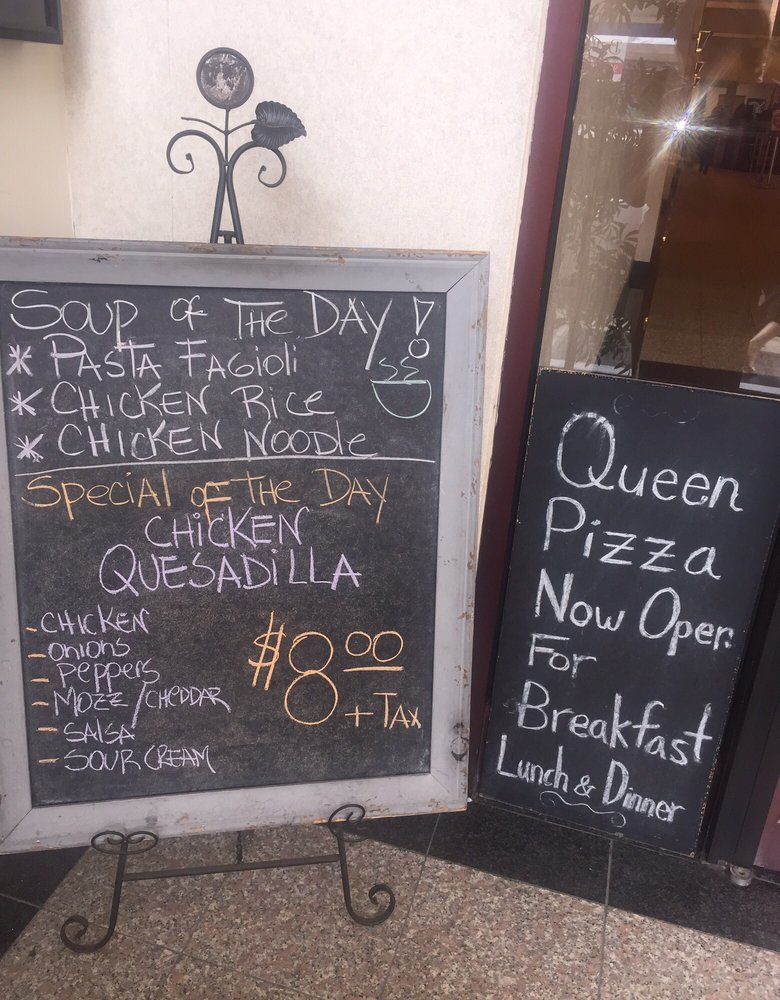 Soup of The Day!
* Pasta Fagioli
* Chicken Rice
* Chicken Noodle
Special of The Day
Chicken
Quesadilla
- Chicken
- onions
- Peppers
- Mozz/Cheddar
- Salsa
- Sour Cream
$8.00
+ Tax
Queen
Pizza
Now Open
For
Breakfast
Lunch & Dinner